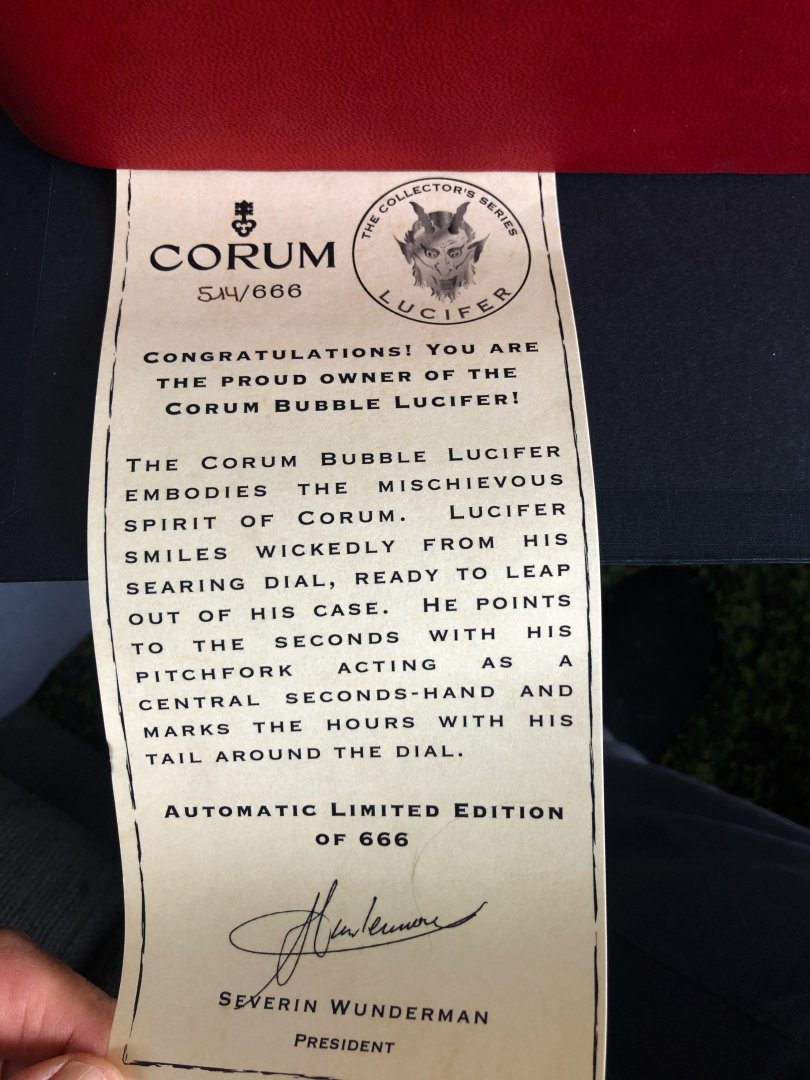 THE COLLECTOR'S SERIES
LUCIFER
CORUM
514/666
CONGRATULATIONS! YOU ARE
THE PROUD OWNER OF THE
CORUM BUBBLE LUCIFER!
THE CORUM BUBBLE LUCIFER
EMBODIES THE MISCHIEVOUS
SPIRIT OF CORUM. LUCIFER
SMILES WICKEDLY FROM HIS
SEARING DIAL, READY TO LEAP
OUT OF HIS CASE. HE POINTS
TO THE SECONDS WITH HIS
PITCHFORK ACTING AS A
CENTRAL SECONDS-HAND AND
MARKS THE HOURS WITH HIS
TAIL AROUND THE DIAL.
AUTOMATIC LIMITED EDITION
OF 666
SEVERIN WUNDERMAN
PRESIDENT